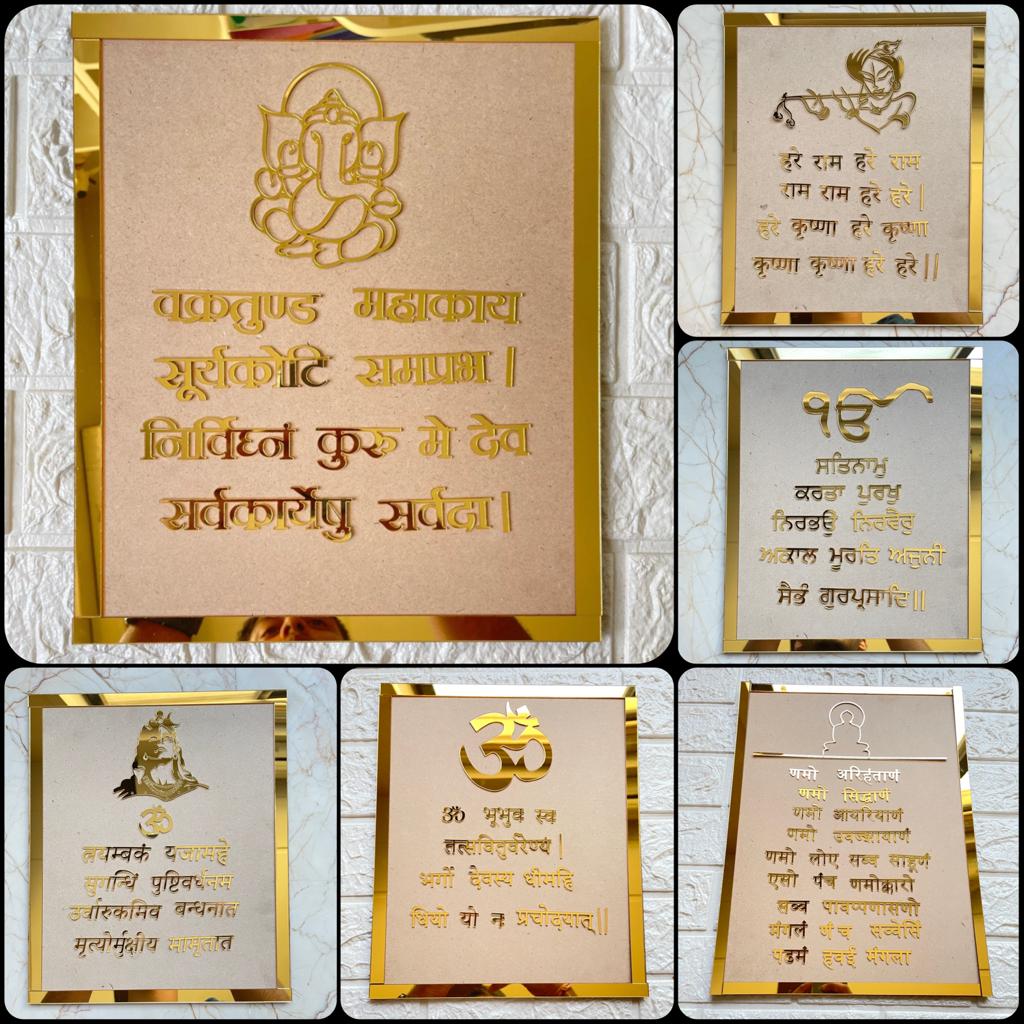 वक्रतुण्ड महाकाय
सूर्यकोटि समप्रभ |
निर्विघ्नं कुरू मे देव
सर्वकार्येषु सर्वदा |
हरे राम हरे राम
राम राम हरे हरे |
हरे कृष्णा हरे कृष्णा
कृष्णा कृष्णा हरे हरे ||
ੴ
ਸਤਿਨਾਮੁ
ਕਰਤਾ ਪੁਰਖੁ
ਨਿਰਭਉ ਨਿਰਵੈਰੁ
ਅਕਾਲ ਮੂਰਤਿ ਅਜੁਨੀ
ਸੈਭੰ ਗੁਰਪ੍ਰਸਾਦਿ ||
ॐ
त्रयम्बकं यजामहे
सुगन्धिं पुष्टिवर्धनम
उर्वारुकमिव बन्धनात
मृत्योर्मुक्षीय मामृतात
ॐ
ॐ भूभुव स्व
तत्सवितुर्वरेण्यं |
भर्गो देवस्य धीमहि
धियो यो न प्रचोदयात् ||
णमो अरिहंताणं
णमो सिद्धाणं
णमो आयरियाणं
णमो उवज्झायाणं
णमो लोए सव्व साहूणं
एसो पंच णमोक्कारो
सव्व पावप्पणासणो
मंगलं णं च सव्वेसिं
पढमं हवई मंगला